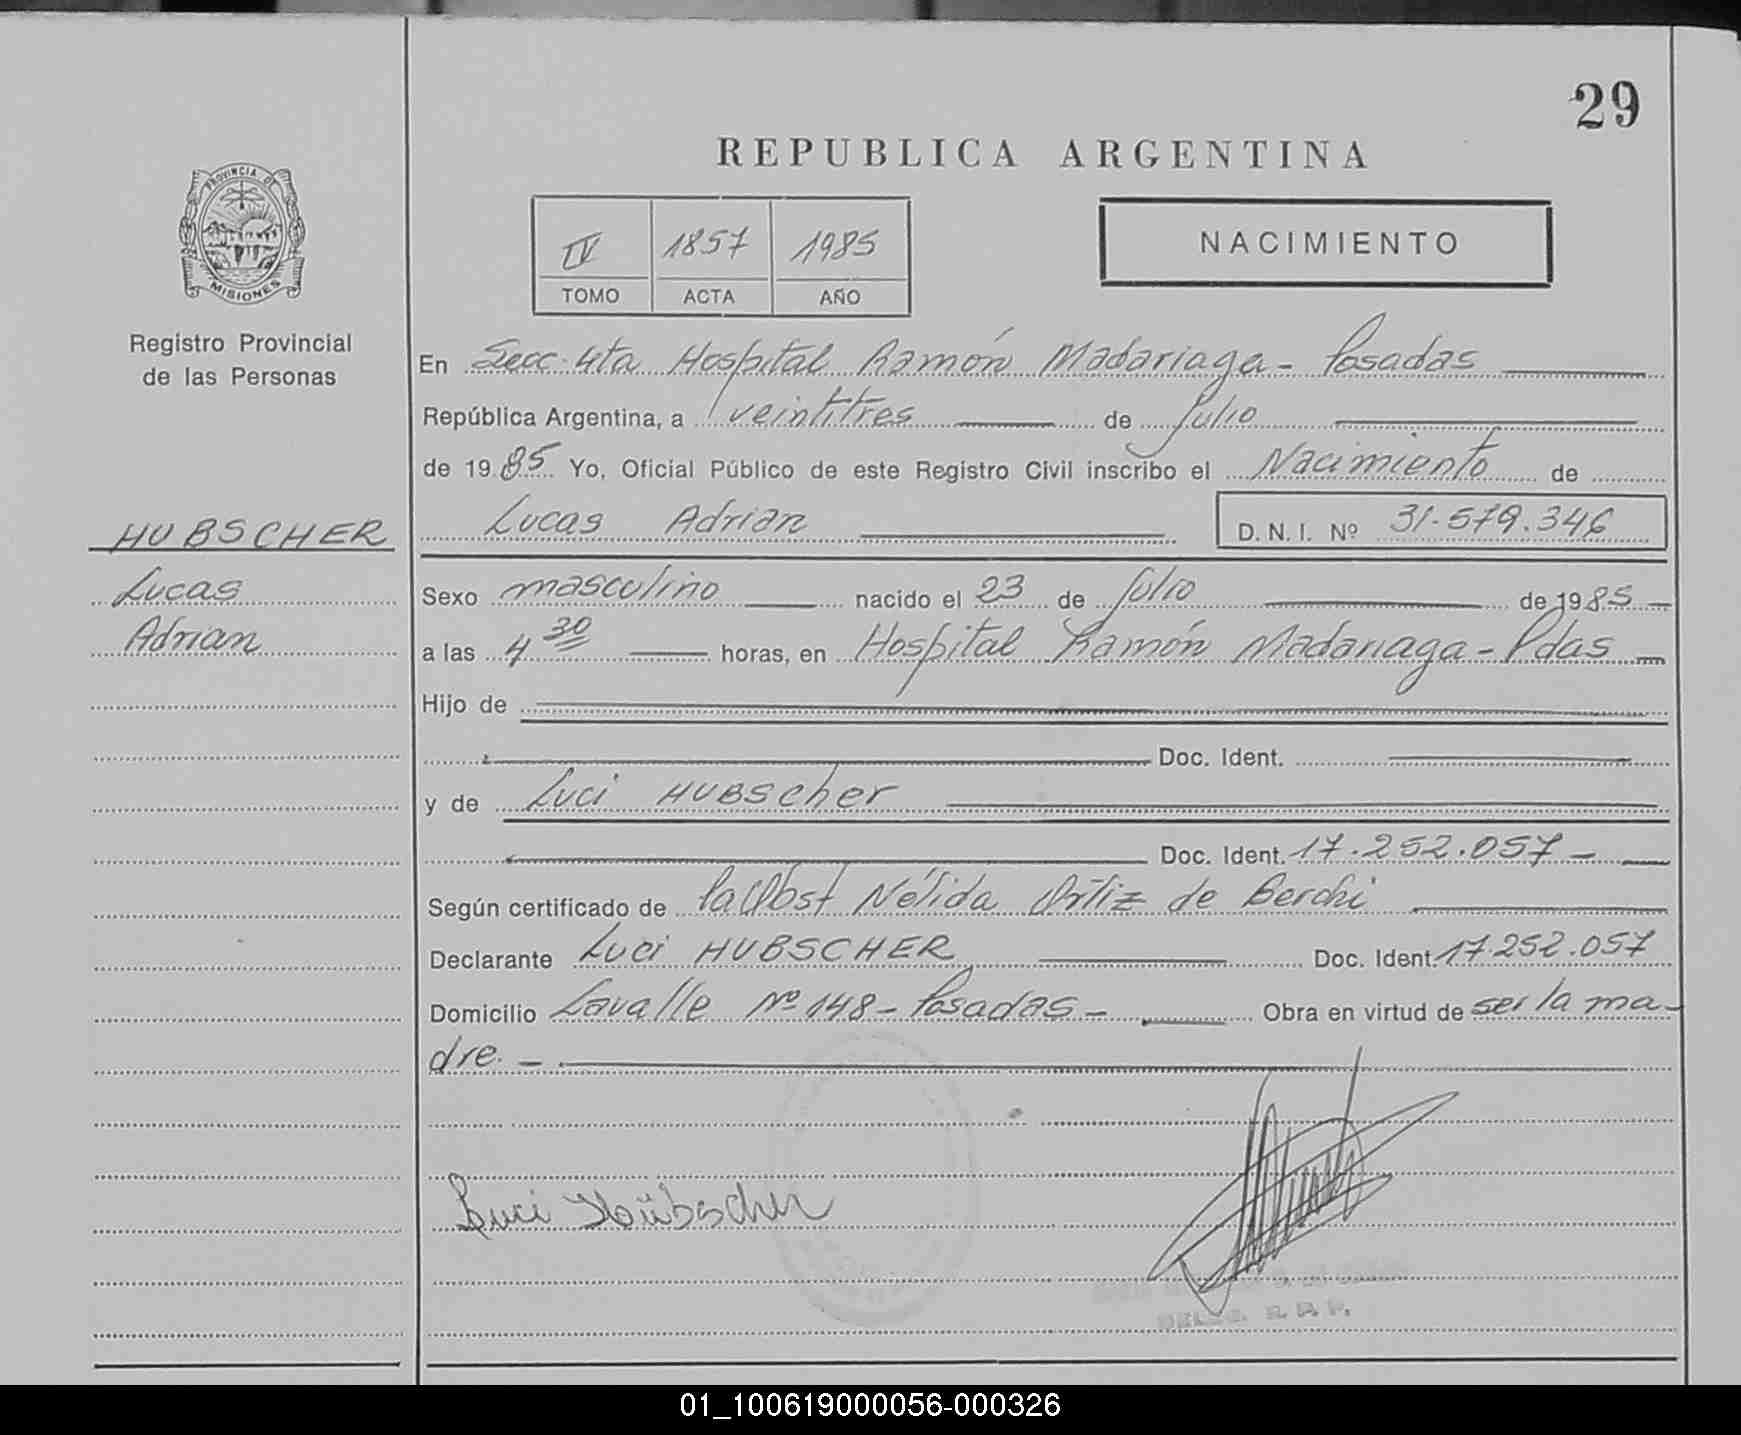 29
REPUBLICA ARGENTINA
PROVINCIA DE
MISIONES
Registro Provincial
de las Personas
IV 1857 1985
TOMO ACTA AÑO
NACIMIENTO
En Secc. 4ta Hospital Ramón Madariaga - Posadas
República Argentina, a veintitres de Julio
de 1985 Yo, Oficial Público de este Registro Civil inscribo el Nacimiento de
Lucas Adrian D. N. I. Nº 31.579.346
HUBSCHER
Lucas
Adrian
Sexo masculino nacido el 23 de julio de 1985 -
a las 4 30 horas, en Hospital Ramón Madariaga - Pdas -
Hijo de
Doc. Ident.
y de Luci HUBScher
Doc. Ident. 17.252.057 -
Según certificado de la Obst Nélida Ortiz de Berchi
Declarante Luci HUBSCHER Doc. Ident. 17.252.057
Domicilio Lavalle Nº 148 - Posadas - Obra en virtud de ser la ma-
dre. -
Luci Hübscher
01_100619000056-000326